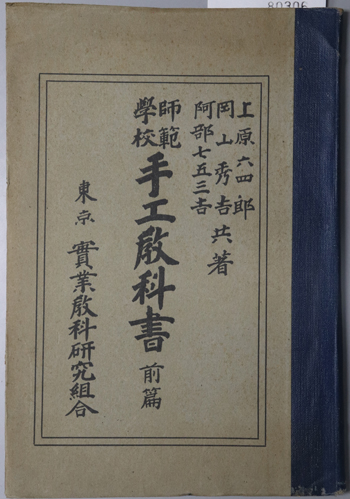 80306
上原六四郎
岡山秀吉
阿部七五三吉
共著
師範
學校
手工敎科書 前篇
東京 實業敎科研究組合